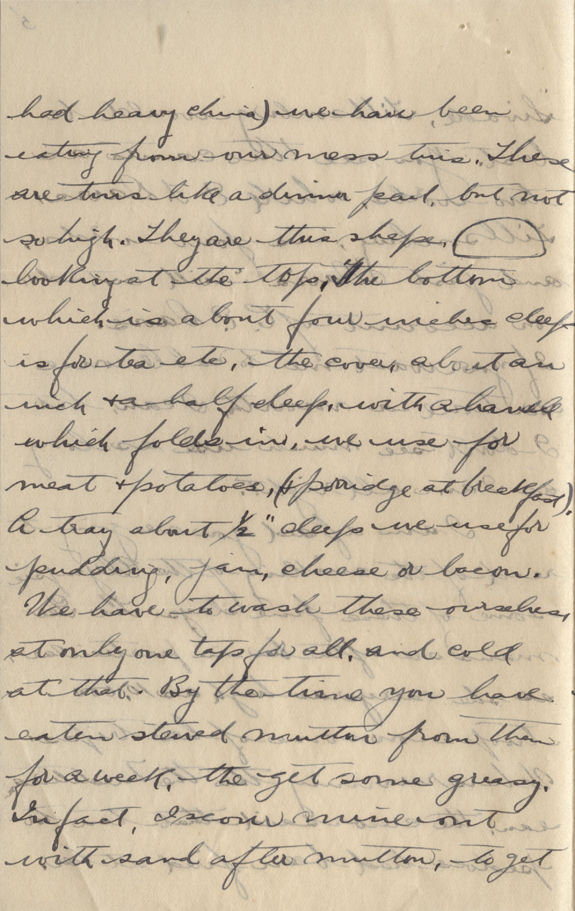 had heavy china) we have been
eating from our mess tins. These
are tins like a dinner pail, but not
so high. They are this shape,
looking at the top. The bottom
which is about four inches deep
is for tea etc, the cover, about an
inch + a half deep, with a handle
which folds in, we use for
meat + potatoes, (+ porridge at breakfast).
A tray about 1/2" deep we use for
pudding, jam, cheese or bacon.
We have to wash these ourselves,
at only one tap for all, and cold
at that. By the time you have
eaten stewed mutton from them
for a week, the get some greasy.
In fact, I scour mine out
with sand after mutton, to get